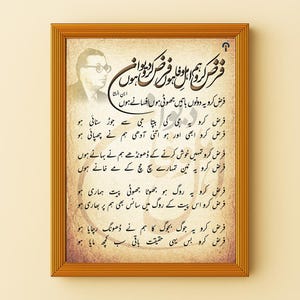 فرض کرو ہم اہل وفا ہوں فرض کرو دیوانے ہوں
ابن انشا
فرض کرو یہ دونوں باتیں جھوٹی ہوں افسانے ہوں
فرض کرو یہ جی کی بپتا جی سے جوڑ سنائی ہو
فرض کرو ابھی اور ہو اتنی آدھی ہم نے چھپائی ہو
فرض کرو تمہیں خوش کرنے کے ڈھونڈھے ہم نے بہانے ہوں
فرض کرو یہ نین تمہارے سچ مچ کے مے خانے ہوں
فرض کرو یہ روگ ہو جھوٹا جھوٹی پیت ہماری ہو
فرض کرو اس پیت کے روگ میں سانس بھی ہم پر بھاری ہو
فرض کرو یہ جوگ بجوگ کا ہم نے ڈھونگ رچایا ہو
فرض کرو بس یہی حقیقت باقی سب کچھ مایا ہو